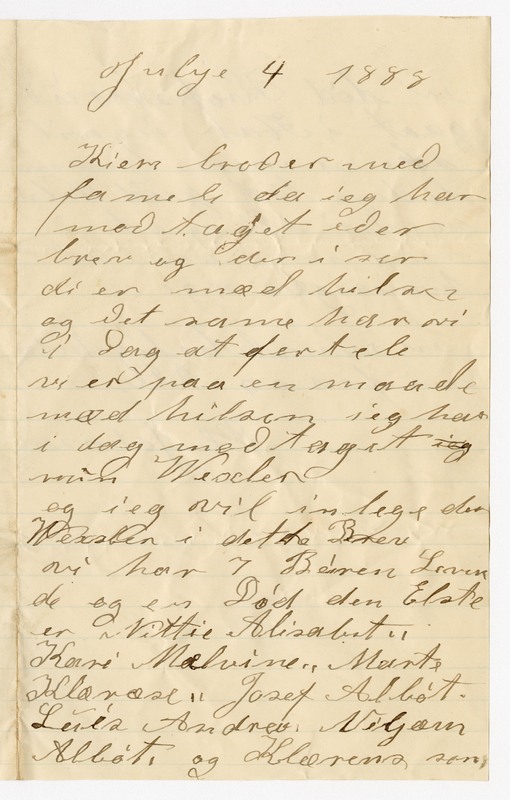 Julye 4 1888
Kiern broder med
fameli da ieg har
mod taget eder
brev og der i ser
di er mæd hilsen
og det same har vi
i dag at fertele
vi er paa en maade
mæd hilsen ieg har
i dag mod taget ieg
min Wexler
og ieg vil inlege den
Wexler i dette Brev
vi har 7 Béren Leven
de og en Død den Elste
er Nittie Alisabet,,
Kari Mælvine,, Marte
Klæræse,, Josef Albót.
Lués Andrev. Viljæm
Albót, og Klærens som